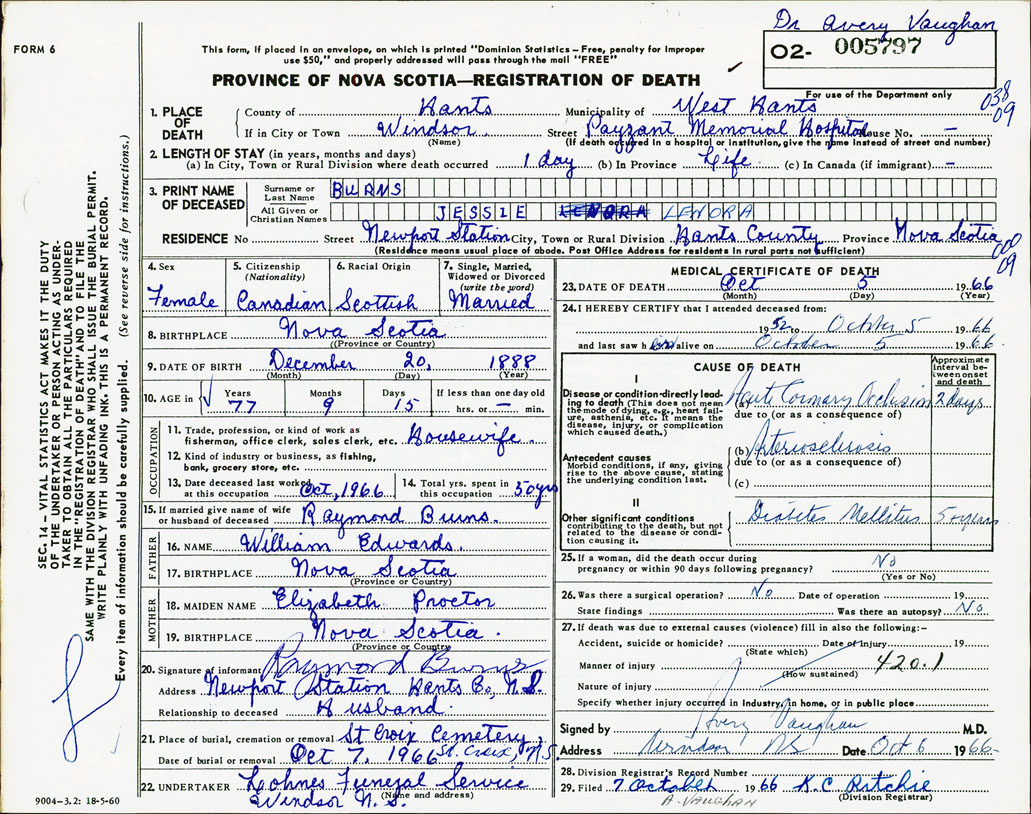 Dr Avery Vaughan
FORM 6
This form, if placed in an envelope, on which is printed "Dominion Statistics—Free, penalty for improper
use $50," and properly addressed will pass through the mail "FREE"
O2- 005797
PROVINCE OF NOVA SCOTIA—REGISTRATION OF DEATH
For use of the Department only
038
09
1. PLACE OF DEATH
County of Hants Municipality of West Hants
If in City or Town Windsor Street Payzant Memorial Hospital House No. —
(Name) (If death occurred in a hospital or institution, give the name instead of street and number)
2. LENGTH OF STAY (in years, months and days)
(a) In City, Town or Rural Division where death occurred 1 day (b) In Province Life (c) In Canada (if immigrant) —
3. PRINT NAME OF DECEASED
Surname or Last Name BURNS
All Given or Christian Names JESSIE LENORA LENORA
RESIDENCE No Street Newport Station City, Town or Rural Division Hants County Province Nova Scotia
(Residence means usual place of abode. Post Office Address for residents in rural parts not sufficient)
000
09
4. Sex Female
5. Citizenship (Nationality) Canadian
6. Racial Origin Scottish
7. Single, Married, Widowed or Divorced (write the word) Married
8. BIRTHPLACE Nova Scotia
(Province or Country)
9. DATE OF BIRTH December 20, 1888
(Month) (Day) (Year)
10. AGE in Years 77 Months 9 Days 15 If less than one day old hrs. or — min.
OCCUPATION
11. Trade, profession, or kind of work as
fisherman, office clerk, sales clerk, etc. Housewife.
12. Kind of industry or business, as fishing,
bank, grocery store, etc.
13. Date deceased last worked at this occupation Oct, 1966
14. Total yrs. spent in this occupation 50 yrs
15. If married give name of wife
or husband of deceased Raymond Burns.
FATHER
16. NAME William Edwards.
17. BIRTHPLACE Nova Scotia
(Province or Country)
MOTHER
18. MAIDEN NAME Elizabeth Proctor
19. BIRTHPLACE Nova Scotia.
(Province or Country)
20. Signature of informant Raymond Burns
Address Newport Station Hants Co, N.S.
Relationship to deceased Husband.
21. Place of burial, cremation or removal St Croix Cemetery,
Date of burial or removal Oct 7, 1966 St. Croix, N.S.
22. UNDERTAKER Lohnes Funeral Service
(Name and address)
Windsor N.S.
9004—3.2: 18-5-60
MEDICAL CERTIFICATE OF DEATH
23. DATE OF DEATH Oct 5 1966
(Month) (Day) (Year)
24. I HEREBY CERTIFY that I attended deceased from:
1952 to October 5 1966
and last saw h er alive on October 5 1966
CAUSE OF DEATH
Approximate interval between onset and death
I
Disease or condition directly leading to death (This does not mean
the mode of dying, e.g., heart failure, asthenia, etc. It means the
disease, injury, or complication
which caused death.)
(a) Acute Coronary Occlusion 2 days
due to (or as a consequence of)
(b) Arteriosclerosis
due to (or as a consequence of)
Antecedent causes
Morbid conditions, if any, giving
rise to the above cause, stating
the underlying condition last.
(c)
II
Other significant conditions
contributing to the death, but not
related to the disease or condition causing it.
Diabetes Mellitus 5 years
25. If a woman, did the death occur during
pregnancy or within 90 days following pregnancy? No
(Yes or No)
26. Was there a surgical operation? No Date of operation 19
State findings Was there an autopsy? No
27. If death was due to external causes (violence) fill in also the following:—
Accident, suicide or homicide? Date of injury 19
(State which)
Manner of injury 420.1
(How sustained)
Nature of injury
Specify whether injury occurred in industry, in home, or in public place
Signed by Avery Vaughan M.D.
Address Windsor NS Date Oct 6 1966
28. Division Registrar's Record Number
29. Filed 7 October 1966 K.C. Ritchie
A. VAUGHAN (Division Registrar)
SEC. 14—VITAL STATISTICS ACT MAKES IT THE DUTY
OF THE UNDERTAKER OR PERSON ACTING AS UNDERTAKER TO OBTAIN ALL THE PARTICULARS REQUIRED
IN THE "REGISTRATION OF DEATH" AND TO FILE THE
SAME WITH THE DIVISION REGISTRAR WHO SHALL ISSUE THE BURIAL PERMIT.
WRITE PLAINLY WITH UNFADING INK. THIS IS A PERMANENT RECORD.
Every item of information should be carefully supplied. (See reverse side for instructions.)